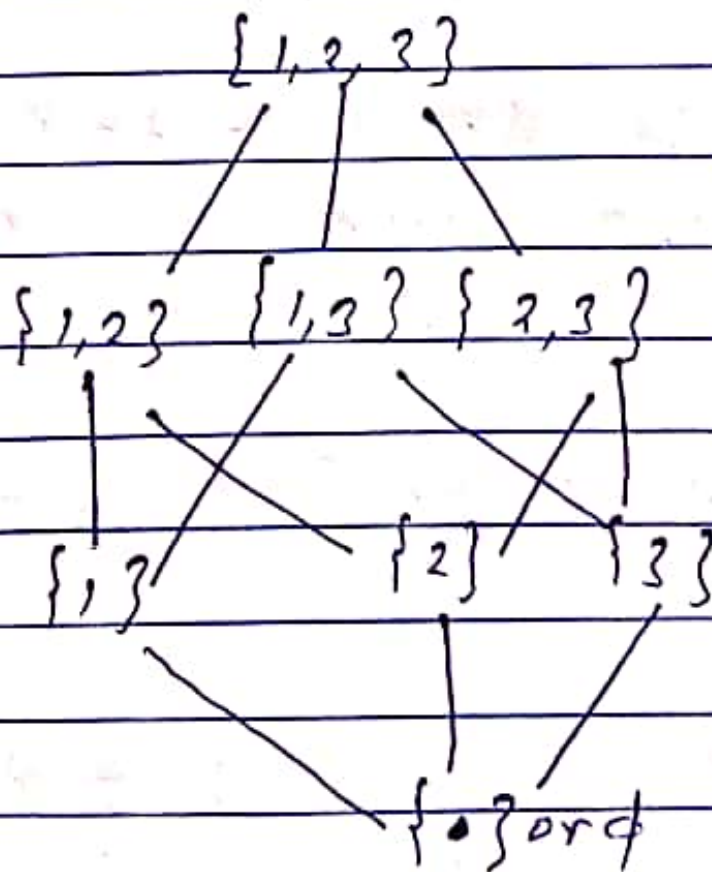 {1,2,3}
{1,2} {1,3} {2,3}
{1} {2} {3}
{•} or ϕ